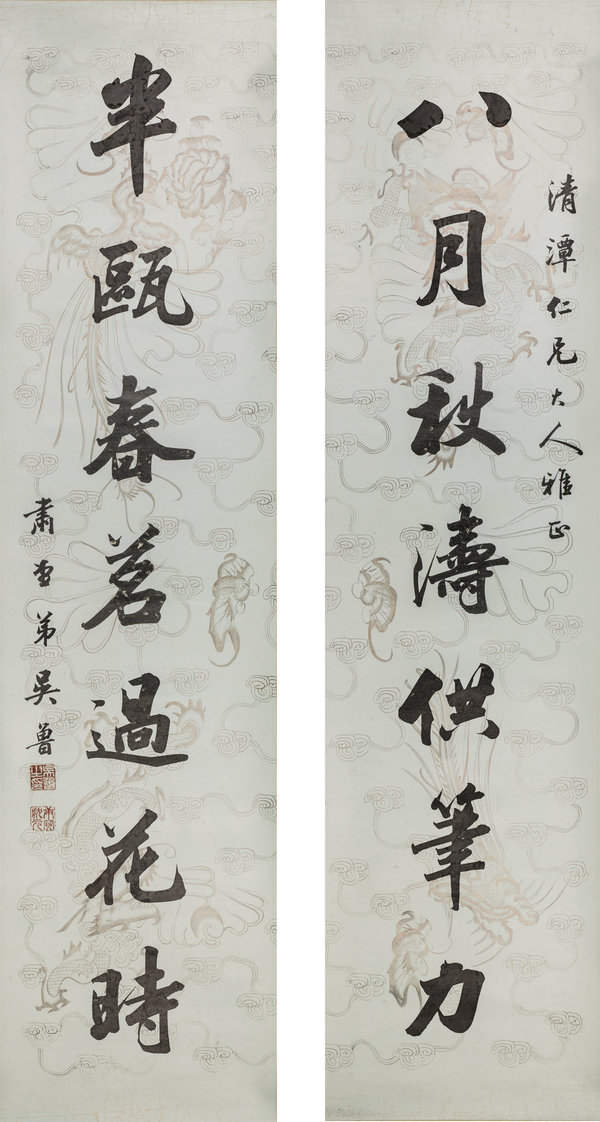 清潭仁兄大人雅正
八月秋濤供筆力
半甌春茗過花時
肅堂弟吳魯